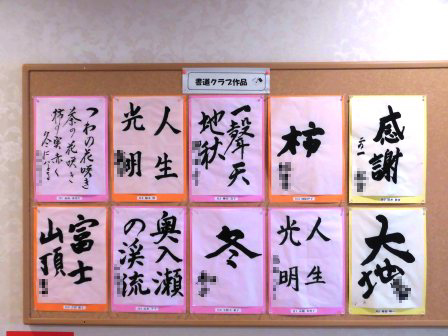 書道クラブ作品
感謝
柿
一聲天
地獄
人生
光明
つわの花咲き
茶の花咲き
柿の実赤く
冬になる
大地
人生
光明
冬
奥入瀬
の渓流
富士
山頂